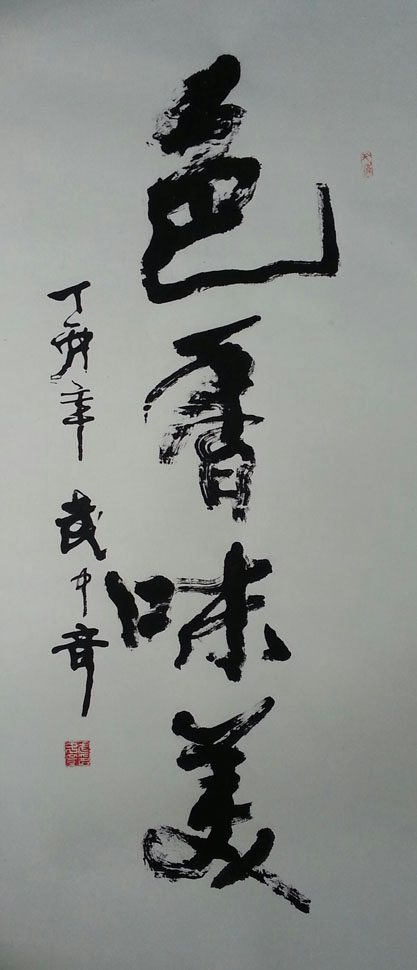 色香味美
丁亥年 武中奇